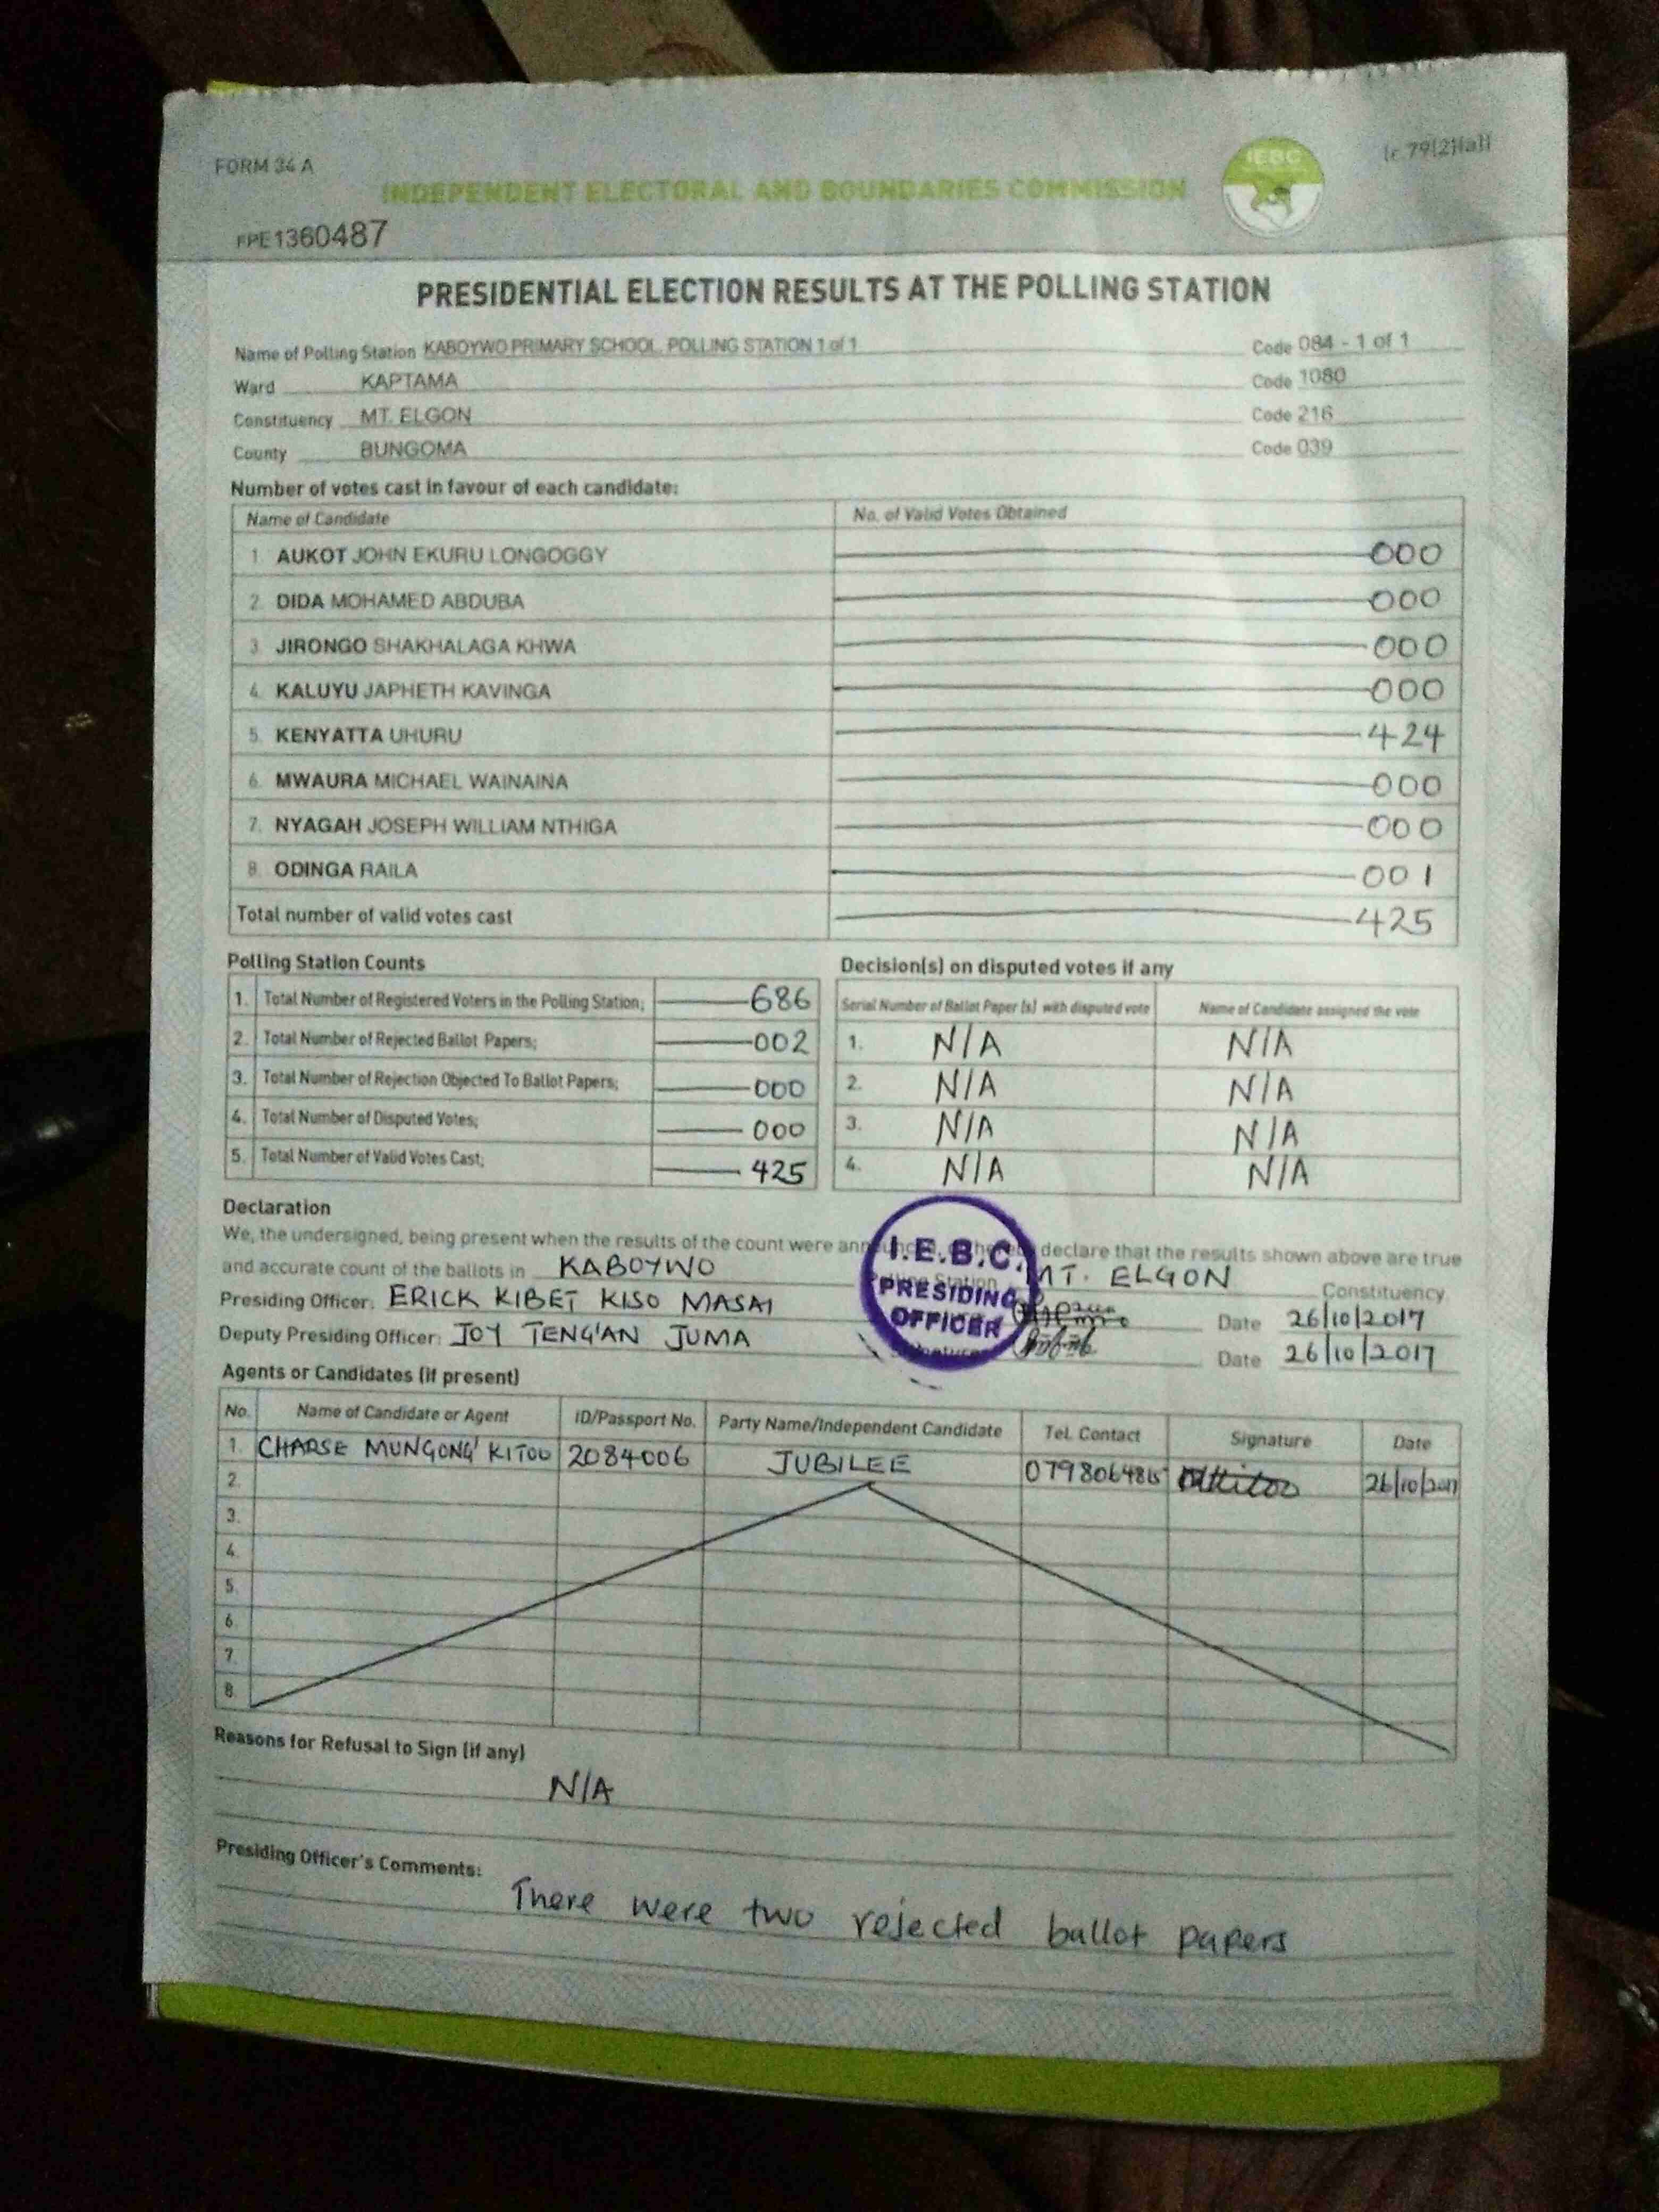 FORM 34 A
(r 79(2)(a))
IEBC
INDEPENDENT ELECTORAL AND BOUNDARIES COMMISSION
FPE1360487
PRESIDENTIAL ELECTION RESULTS AT THE POLLING STATION
Name of Polling Station KABOYWO PRIMARY SCHOOL POLLING STATION 1 of 1 Code 084 - 1 of 1
Ward KAPTAMA Code 1080
Constituency MT. ELGON Code 216
County BUNGOMA Code 039
Number of votes cast in favour of each candidate:
Name of Candidate No. of Valid Votes Obtained
1 AUKOT JOHN EKURU LONGOGGY 000
2. DIDA MOHAMED ABDUBA 000
3 JIRONGO SHAKHALAGA KHWA 000
4. KALUYU JAPHETH KAVINGA 000
5. KENYATTA UHURU 424
6. MWAURA MICHAEL WAINAINA 000
7. NYAGAH JOSEPH WILLIAM NTHIGA 000
8. ODINGA RAILA 001
Total number of valid votes cast 425
Polling Station Counts
1. Total Number of Registered Voters in the Polling Station; 686
2. Total Number of Rejected Ballot Papers; 002
3. Total Number of Rejection Objected To Ballot Papers; 000
4. Total Number of Disputed Votes; 000
5. Total Number of Valid Votes Cast; 425
Decision(s) on disputed votes if any
Serial Number of Ballot Paper (s) with disputed vote Name of Candidate assigned the vote
1. N/A N/A
2. N/A N/A
3. N/A N/A
4. N/A N/A
Declaration
We, the undersigned, being present when the results of the count were declare that the results shown above are true
and accurate count of the ballots in KABOYWO Polling Station MT. ELGON Constituency
Presiding Officer: ERICK KIBET KISO MASAI Date 26/10/2017
Deputy Presiding Officer: JOY TENG'AN JUMA Date 26/10/2017
I.E.B.C.
PRESIDING
OFFICER
Agents or Candidates (if present)
No. Name of Candidate or Agent ID/Passport No. Party Name/Independent Candidate Tel. Contact Signature Date
1. CHARSE MUNGONG' KITOO 2084006 JUBILEE 26/10/2017
2.
3.
4.
5.
6.
7.
8.
Reasons for Refusal to Sign (if any)
N/A
Presiding Officer's Comments:
There were two rejected ballot papers